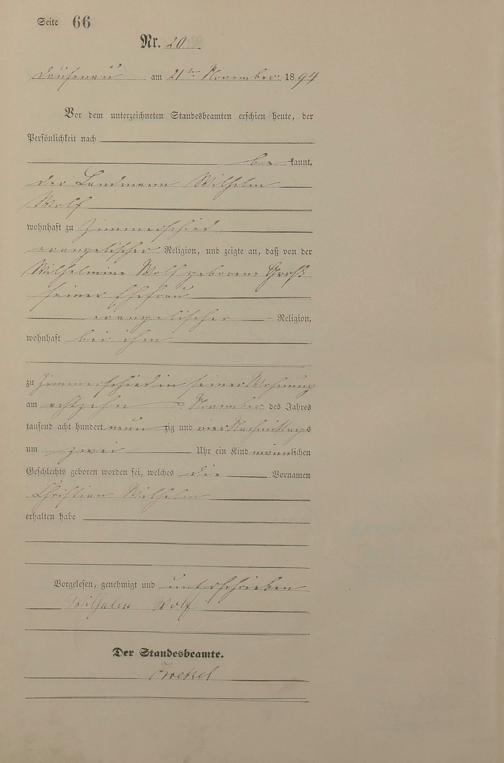 Seite 66
Nr. 20
Dausenau am 21ten November 1894
Vor dem unterzeichneten Standesbeamten erschien heute, der
Persönlichkeit nach
be kannt,
der Landmann Wilhelm
Wolf
wohnhaft zu Zimmerschied
evangelischer Religion, und zeigte an, daß von der
Wilhelmine Wolf geborene Groß
seiner Ehefrau
evangelischer Religion,
wohnhaft bei ihm
zu Zimmerschied in seiner Wohnung
am achtzehn November des Jahres
tausend acht hundert neun zig und vier Nachmittags
um zwei Uhr ein Kind männlichen
Geschlechts geboren worden sei, welches die Vornamen
Christian Wilhelm
erhalten habe
Vorgelesen, genehmigt und unterschrieben
Wilhelm Wolf
Der Standesbeamte.